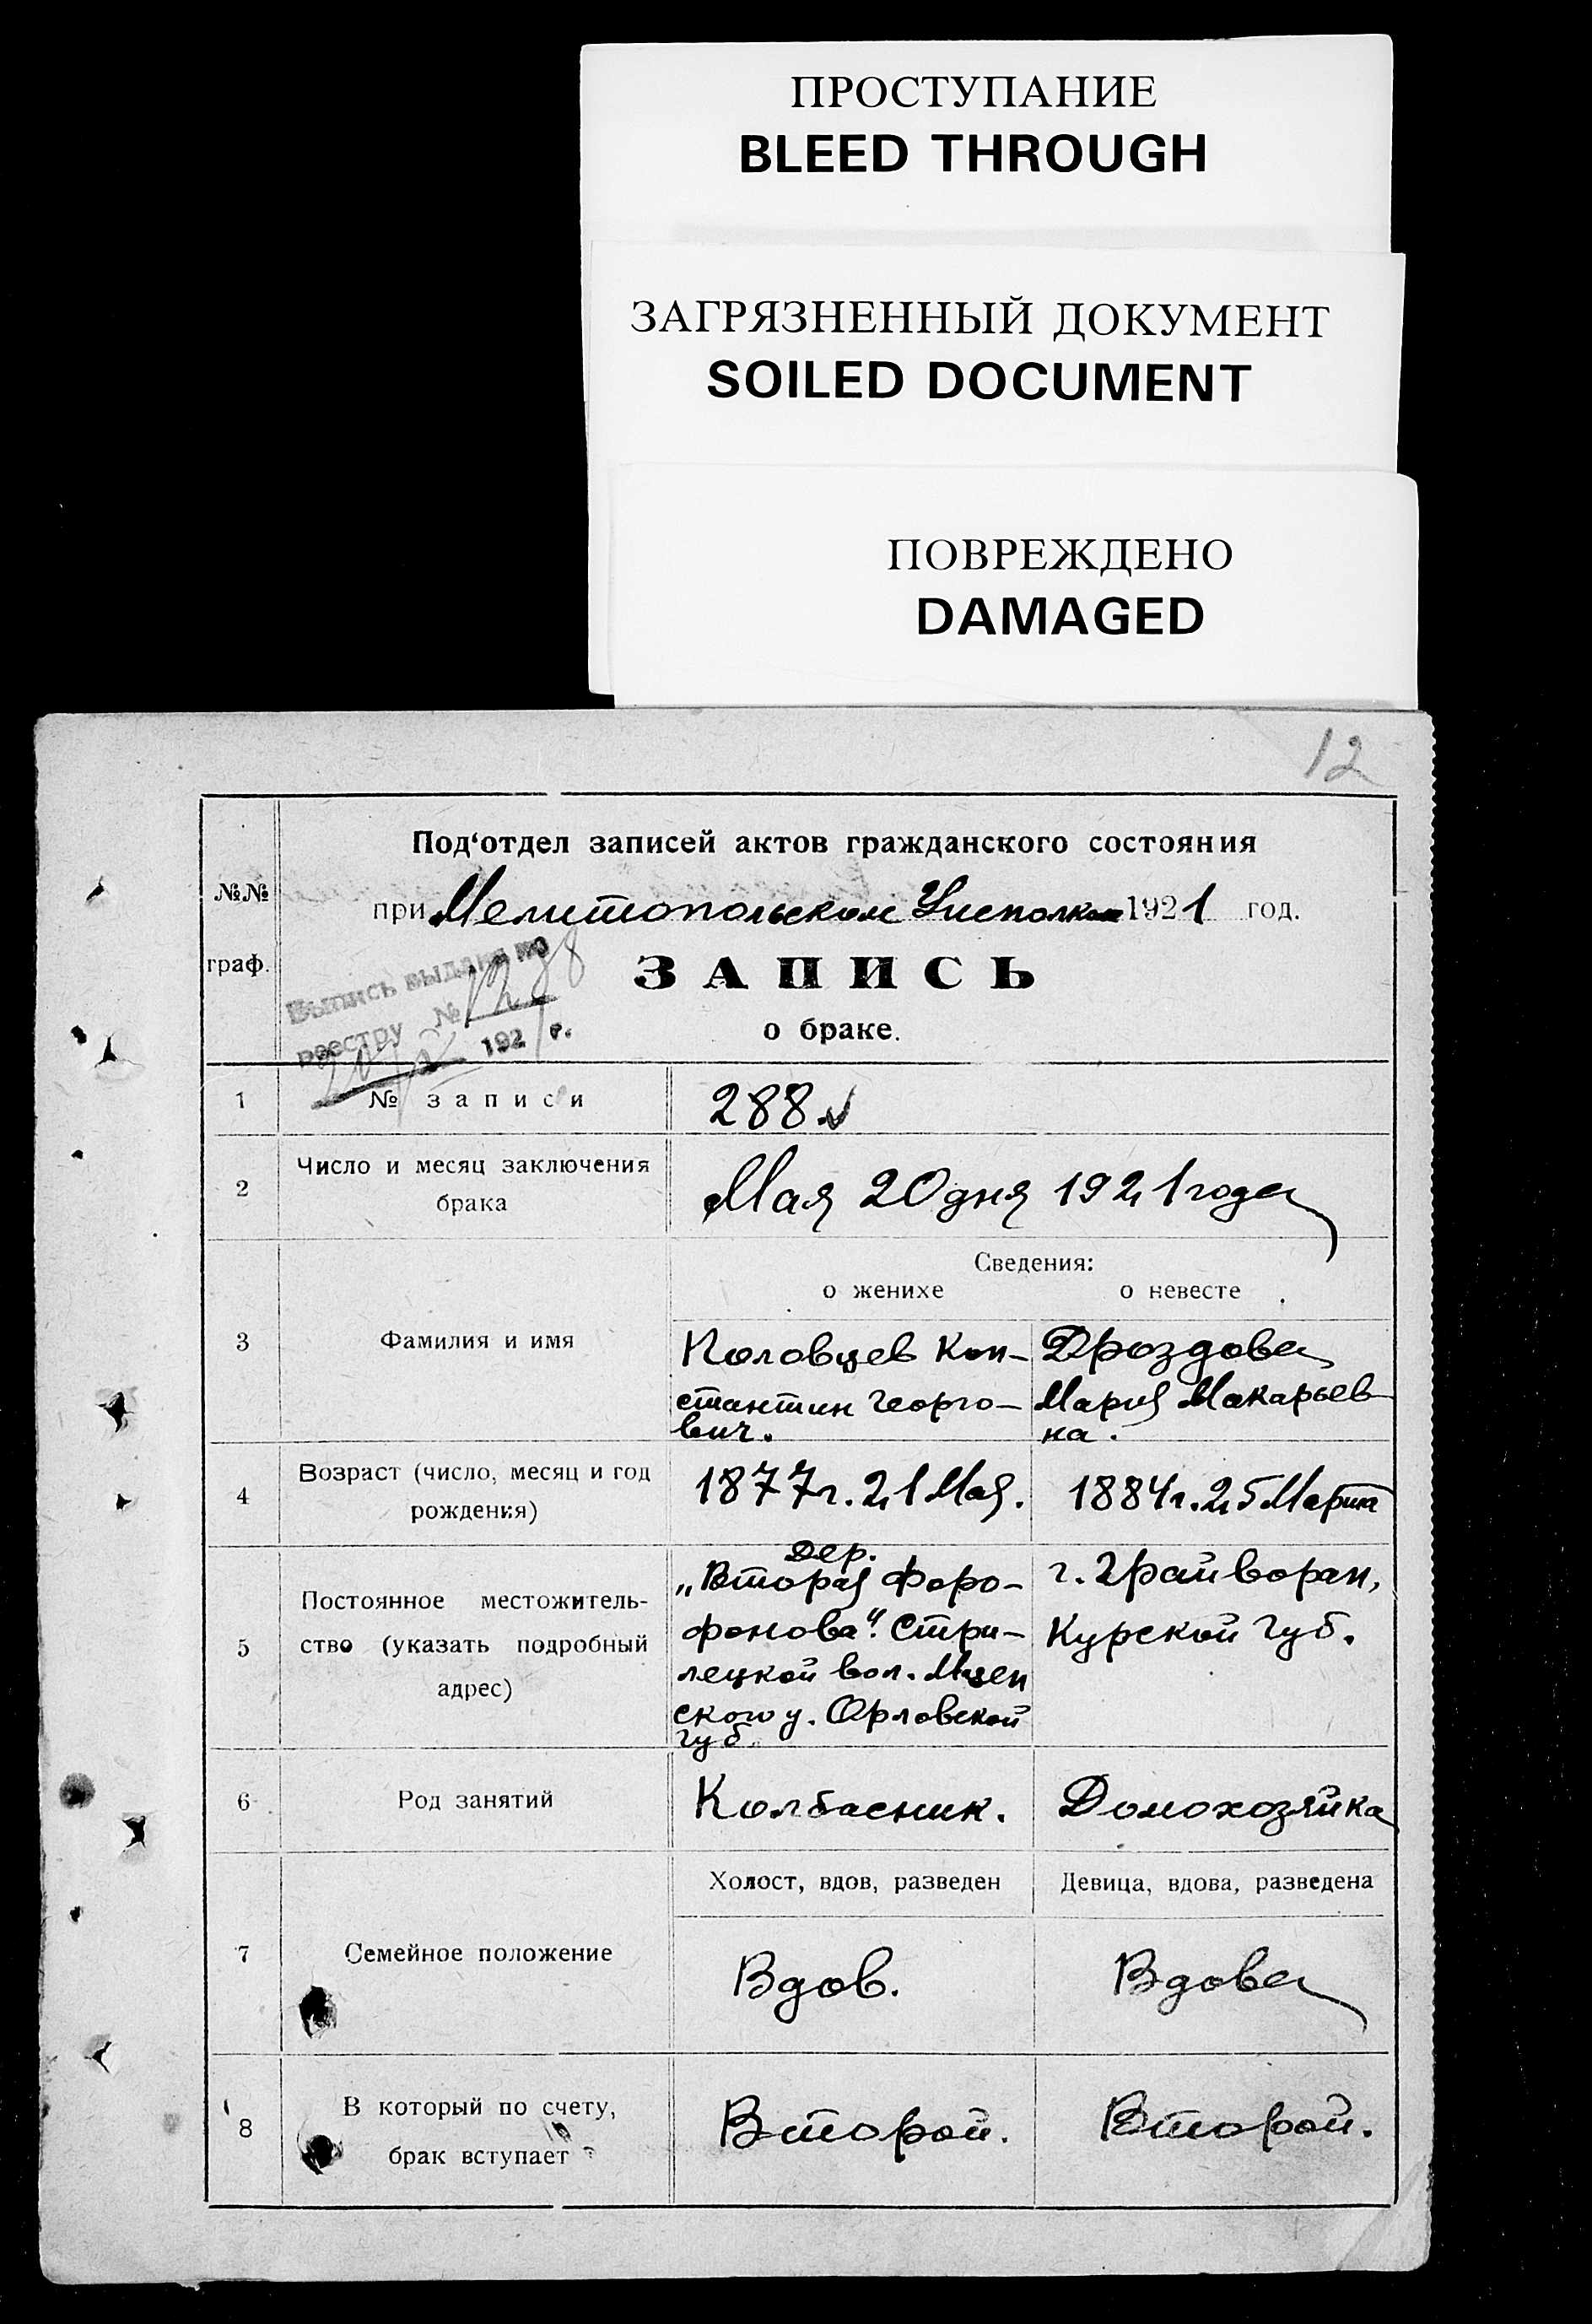 ПРОСТУПАНИЕ
BLEED THROUGH
ЗАГРЯЗНЕННЫЙ ДОКУМЕНТ
SOILED DOCUMENT
ПОВРЕЖДЕНО
DAMAGED
12
№№
граф.
Под‘отдел записей актов гражданского состояния
при Мелитопольском Уисполкоме 1921 год.
Выпись выдана по
реестру №
192 г.
ЗАПИСЬ
о браке.
1 № записи 288
2 Число и месяц заключения
брака
Мая 20 дня 1921 года
Сведения:
о женихе о невесте
3 Фамилия и имя
Половцев Кон-
стантин Георго-
вич.
Дроздова
Мария Макарьев
на.
4 Возраст (число, месяц и год
рождения)
1877г. 21 Мая. 1884г. 25 Марта
5 Постоянное местожитель-
ство (указать подробный
адрес)
дер.
„Вторая Форо-
фонова“. Стри-
лецкой вол. Мцен
ского у. Орловской
губ.
г. Грайворан,
Курской Губ.
6 Род занятий Колбасник. Домохозяйка
Холост, вдов, разведен Девица, вдова, разведена
7 Семейное положение Вдов. Вдова
8 В который по счету,
брак вступает
Второй. Второй.